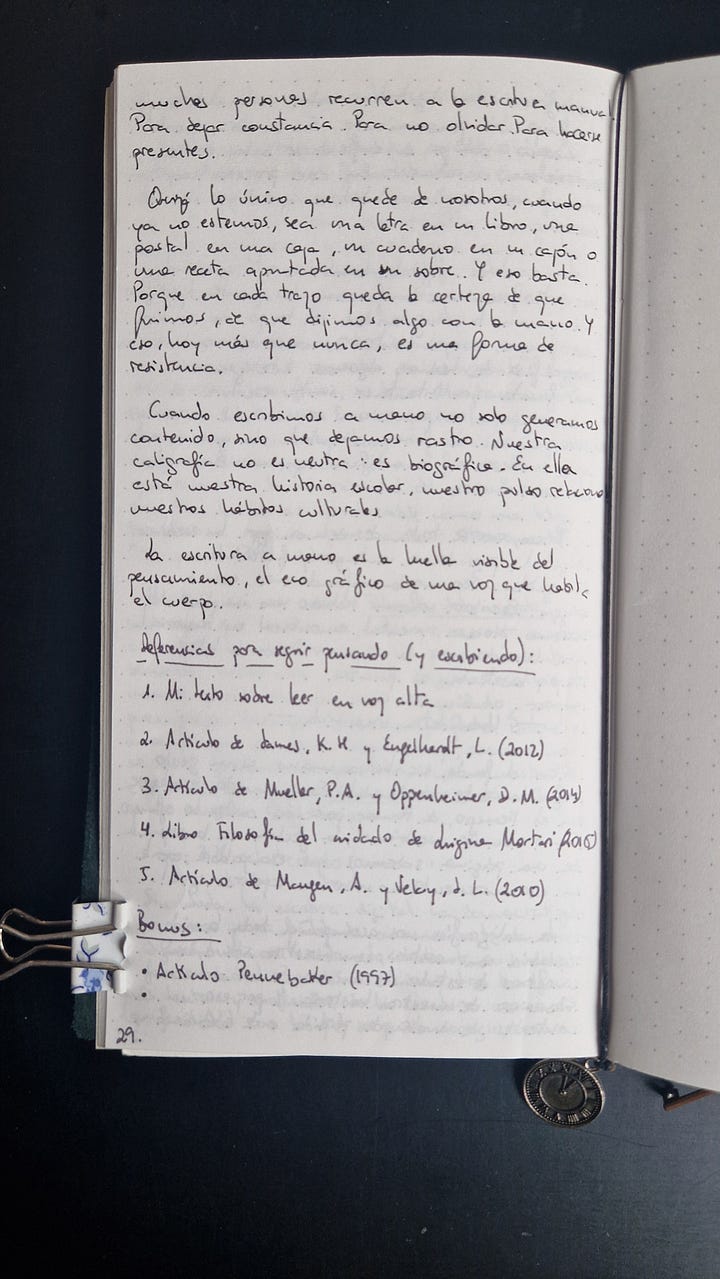 muchas personas recurren a la escritura manual.
Para dejar constancia. Para no olvidar. Para hacerse
presentes.
Quizá lo único que quede de nosotros, cuando
ya no estemos, sea una letra en un libro, una
postal en una caja, un cuaderno en un cajón o
una receta apuntada en un sobre. Y eso basta.
Porque en cada trazo queda la certeza de que
fuimos, de que dijimos algo con la mano. Y
eso, hoy más que nunca, es una forma de
resistencia.
Cuando escribimos a mano no solo generamos
contenido, sino que dejamos rastro. Nuestra
caligrafía no es neutra: es biográfica. En ella
está nuestra historia escolar, nuestro pulso
nuestros hábitos culturales.
La escritura a mano es la huella visible del
pensamiento, el eco gráfico de una voz que habita
el cuerpo.
Referencias para seguir pensando (y escribiendo):
1. Mi texto sobre leer en voz alta
2. Artículo de James, K. H. y Engelhardt, L. (2012)
3. Artículo de Mueller, P.A. y Oppenheimer, D. M. (2014)
4. Libro Filosofía del cuidado de Luigina Mortari (2015)
5. Artículo de Mangen, A. y Velay, J. L. (2010)
Bonus:
• Artículo Pennebaker (1997)
•
29.